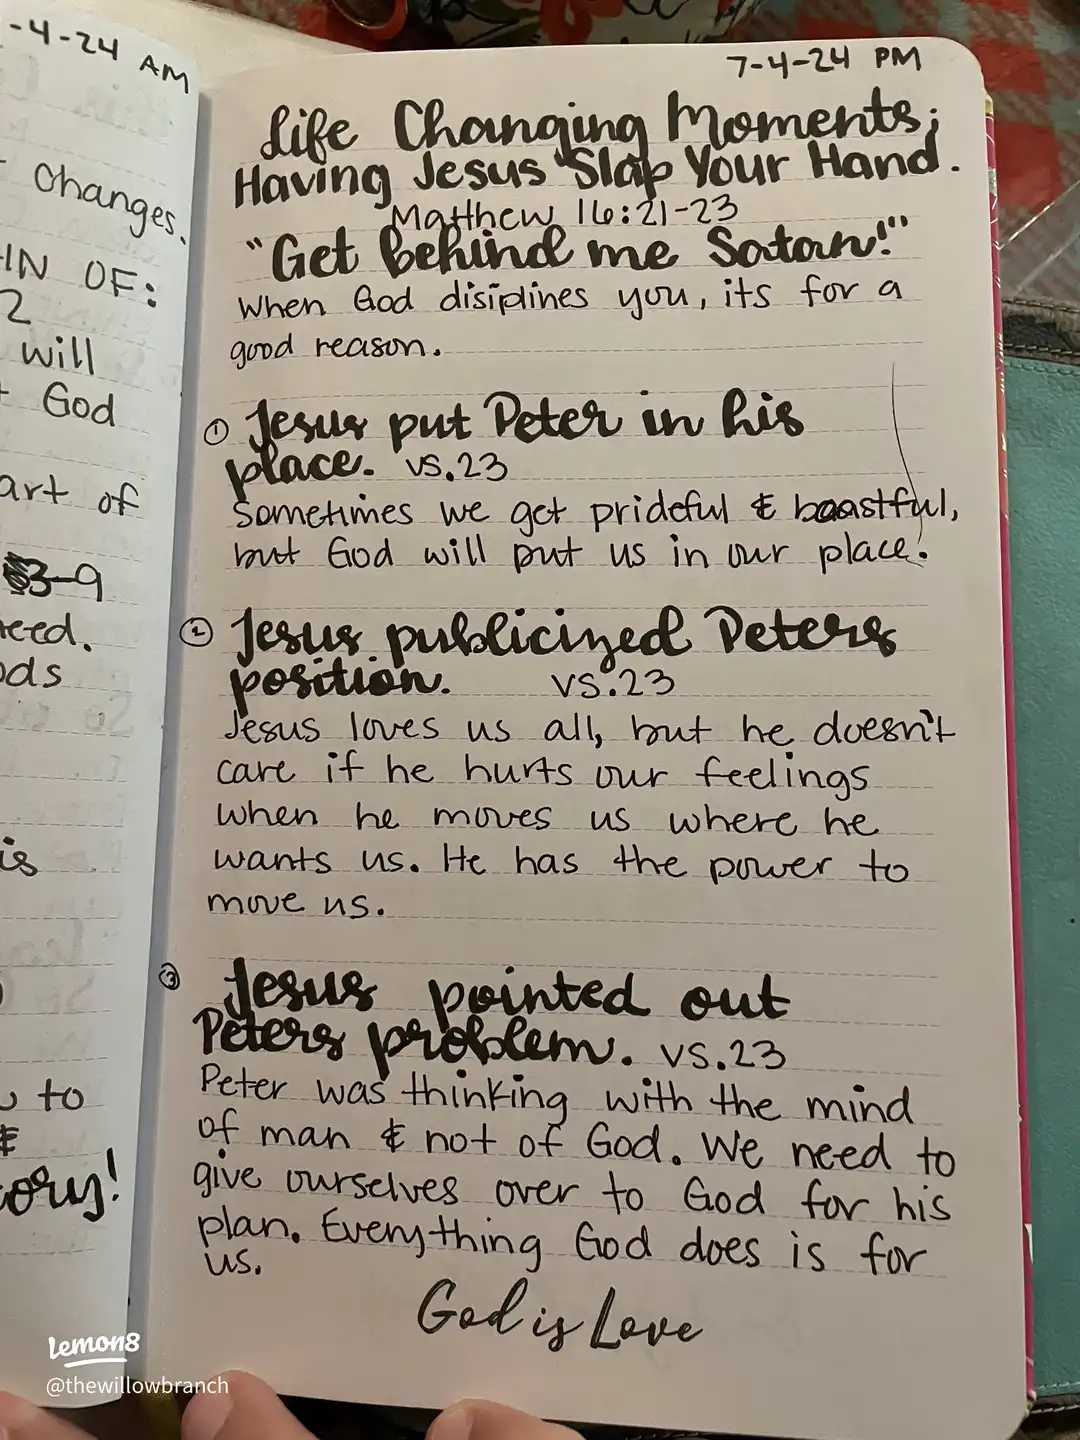 -4-24 AM
changes.
IN OF:
2
will
God
art of
3-9
eed.
ds
is
to
&
ory!
7-4-24 PM
Life Changing Moments;
Having Jesus Slap Your Hand.
Matthew 16:21-23
"Get behind me Satan!"
When God disiplines you, its for a
good reason.
① Jesus put Peter in his
place. vs.23
Sometimes we get prideful & boastful,
but God will put us in our place.
② Jesus publicized Peters
position. vs.23
Jesus loves us all, but he doesn't
care if he hurts our feelings
when he moves us where he
wants us. He has the power to
move us.
③ Jesus pointed out
Peters problem. vs.23
Peter was thinking with the mind
of man & not of God. We need to
give ourselves over to God for his
plan. Everything God does is for
us.
God is Love
Lemon8
@thewillowbranch